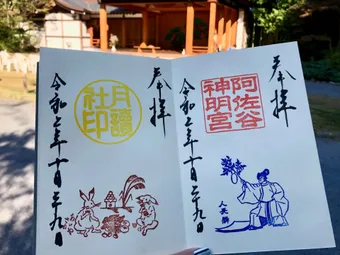 奉拝
阿佐谷
神明宮
令和七年十月二十九日
人長舞
奉拝
月讀
社印
令和七年十月二十九日